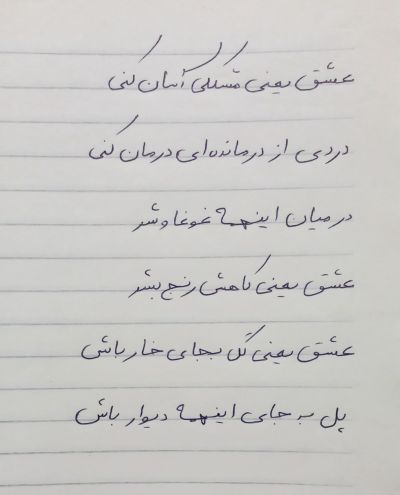 عشق یعنی مشکلی آسان کنی
دردی از درمانده‌ای درمان کنی
در میان اینهمه غوغا و شر
عشق یعنی کاهش رنج بشر
عشق یعنی گل بجای خار باش
پل به جای اینهمه دیوار باش